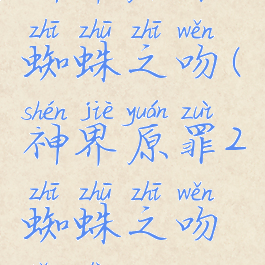 zhī zhū zhī wěn
蜘蛛之吻(
shén jiè yuán zuì
神界原罪2
zhī zhū zhī wěn
蜘蛛之吻